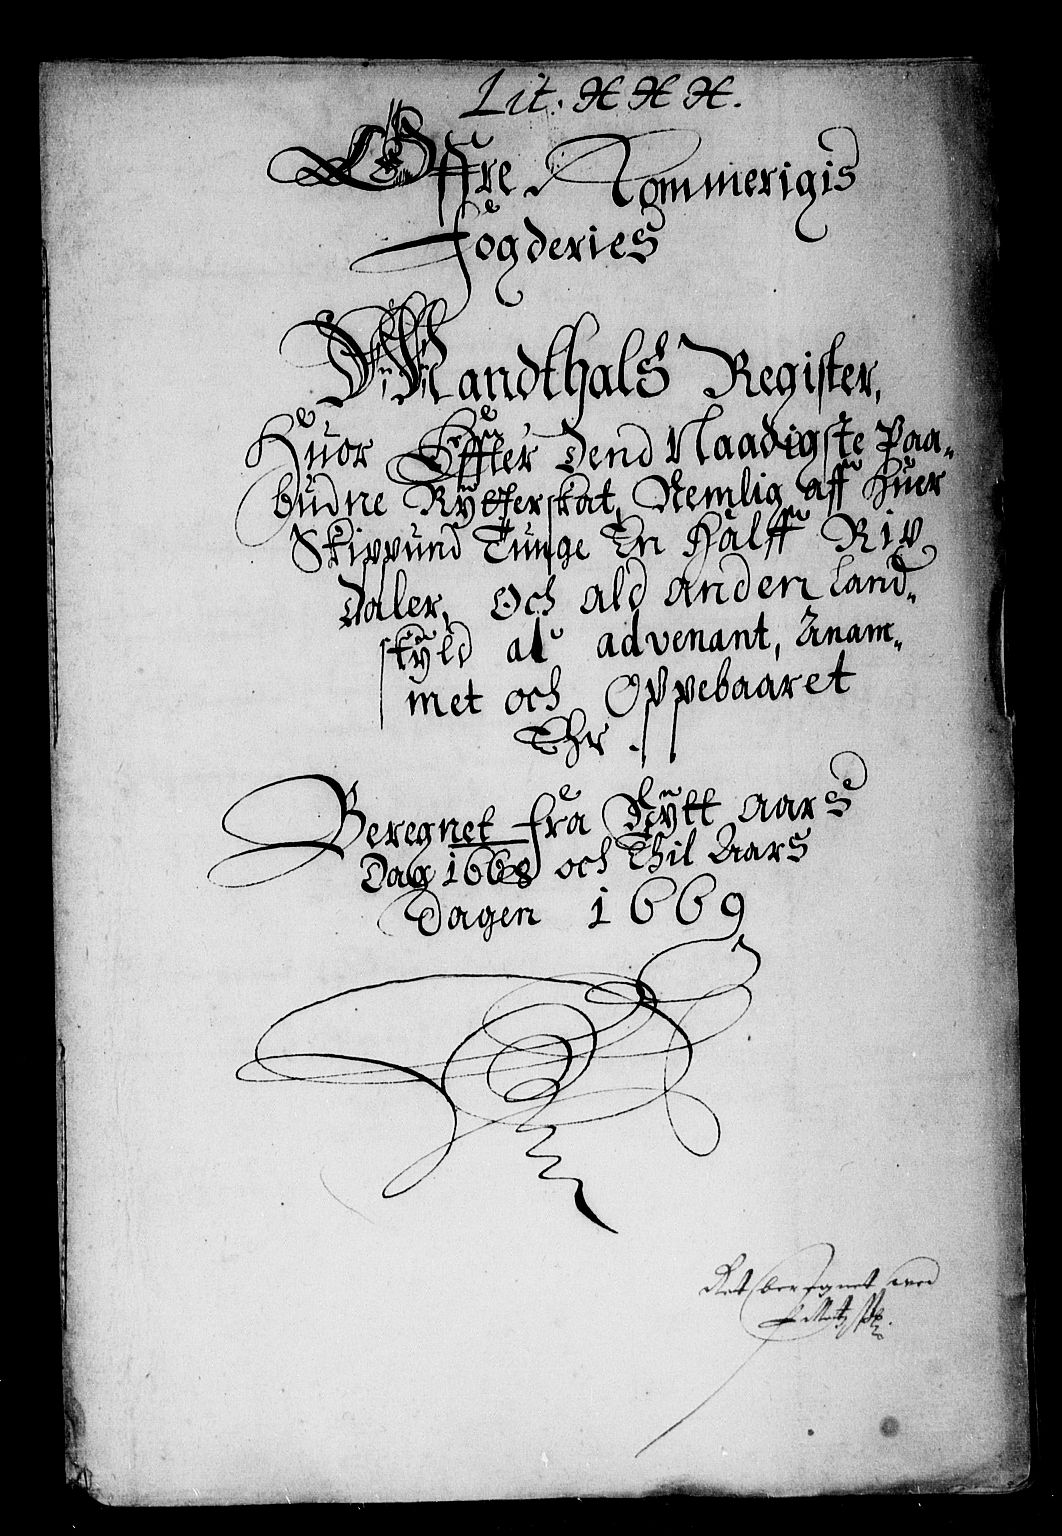 Lit. H H H.
Öffre Rommerigis
fögderies
Mandthals Register,
Huor Effter dend Naadigste Paa-
budne Rÿtterskat, Nemlig aff huer
Skippund Tunge En halff Rix
Daler, Och ald anden land-
skÿld al advenant, Anam-
met och Oppebaaret
Ehr.
Beregnet fra Nÿtt aars
Dag 1668 och Thil Aars
dagen 1669
Ret beregnet